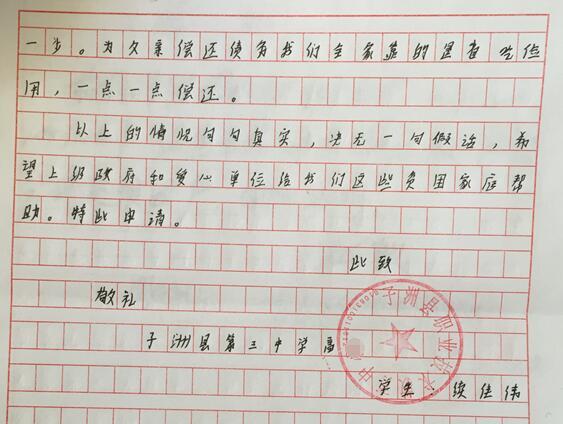 一步。为欠亲偿还债务我们全家靠的是省吃俭
用，一点一点偿还。
以上的情况句句真实，决无一句假话，希
望上级政府和爱心单位给我们这些贫困家庭帮
助。特此申请。
此致
敬礼
子洲县第三中学高
学生：续佳伟
子洲县职业技术